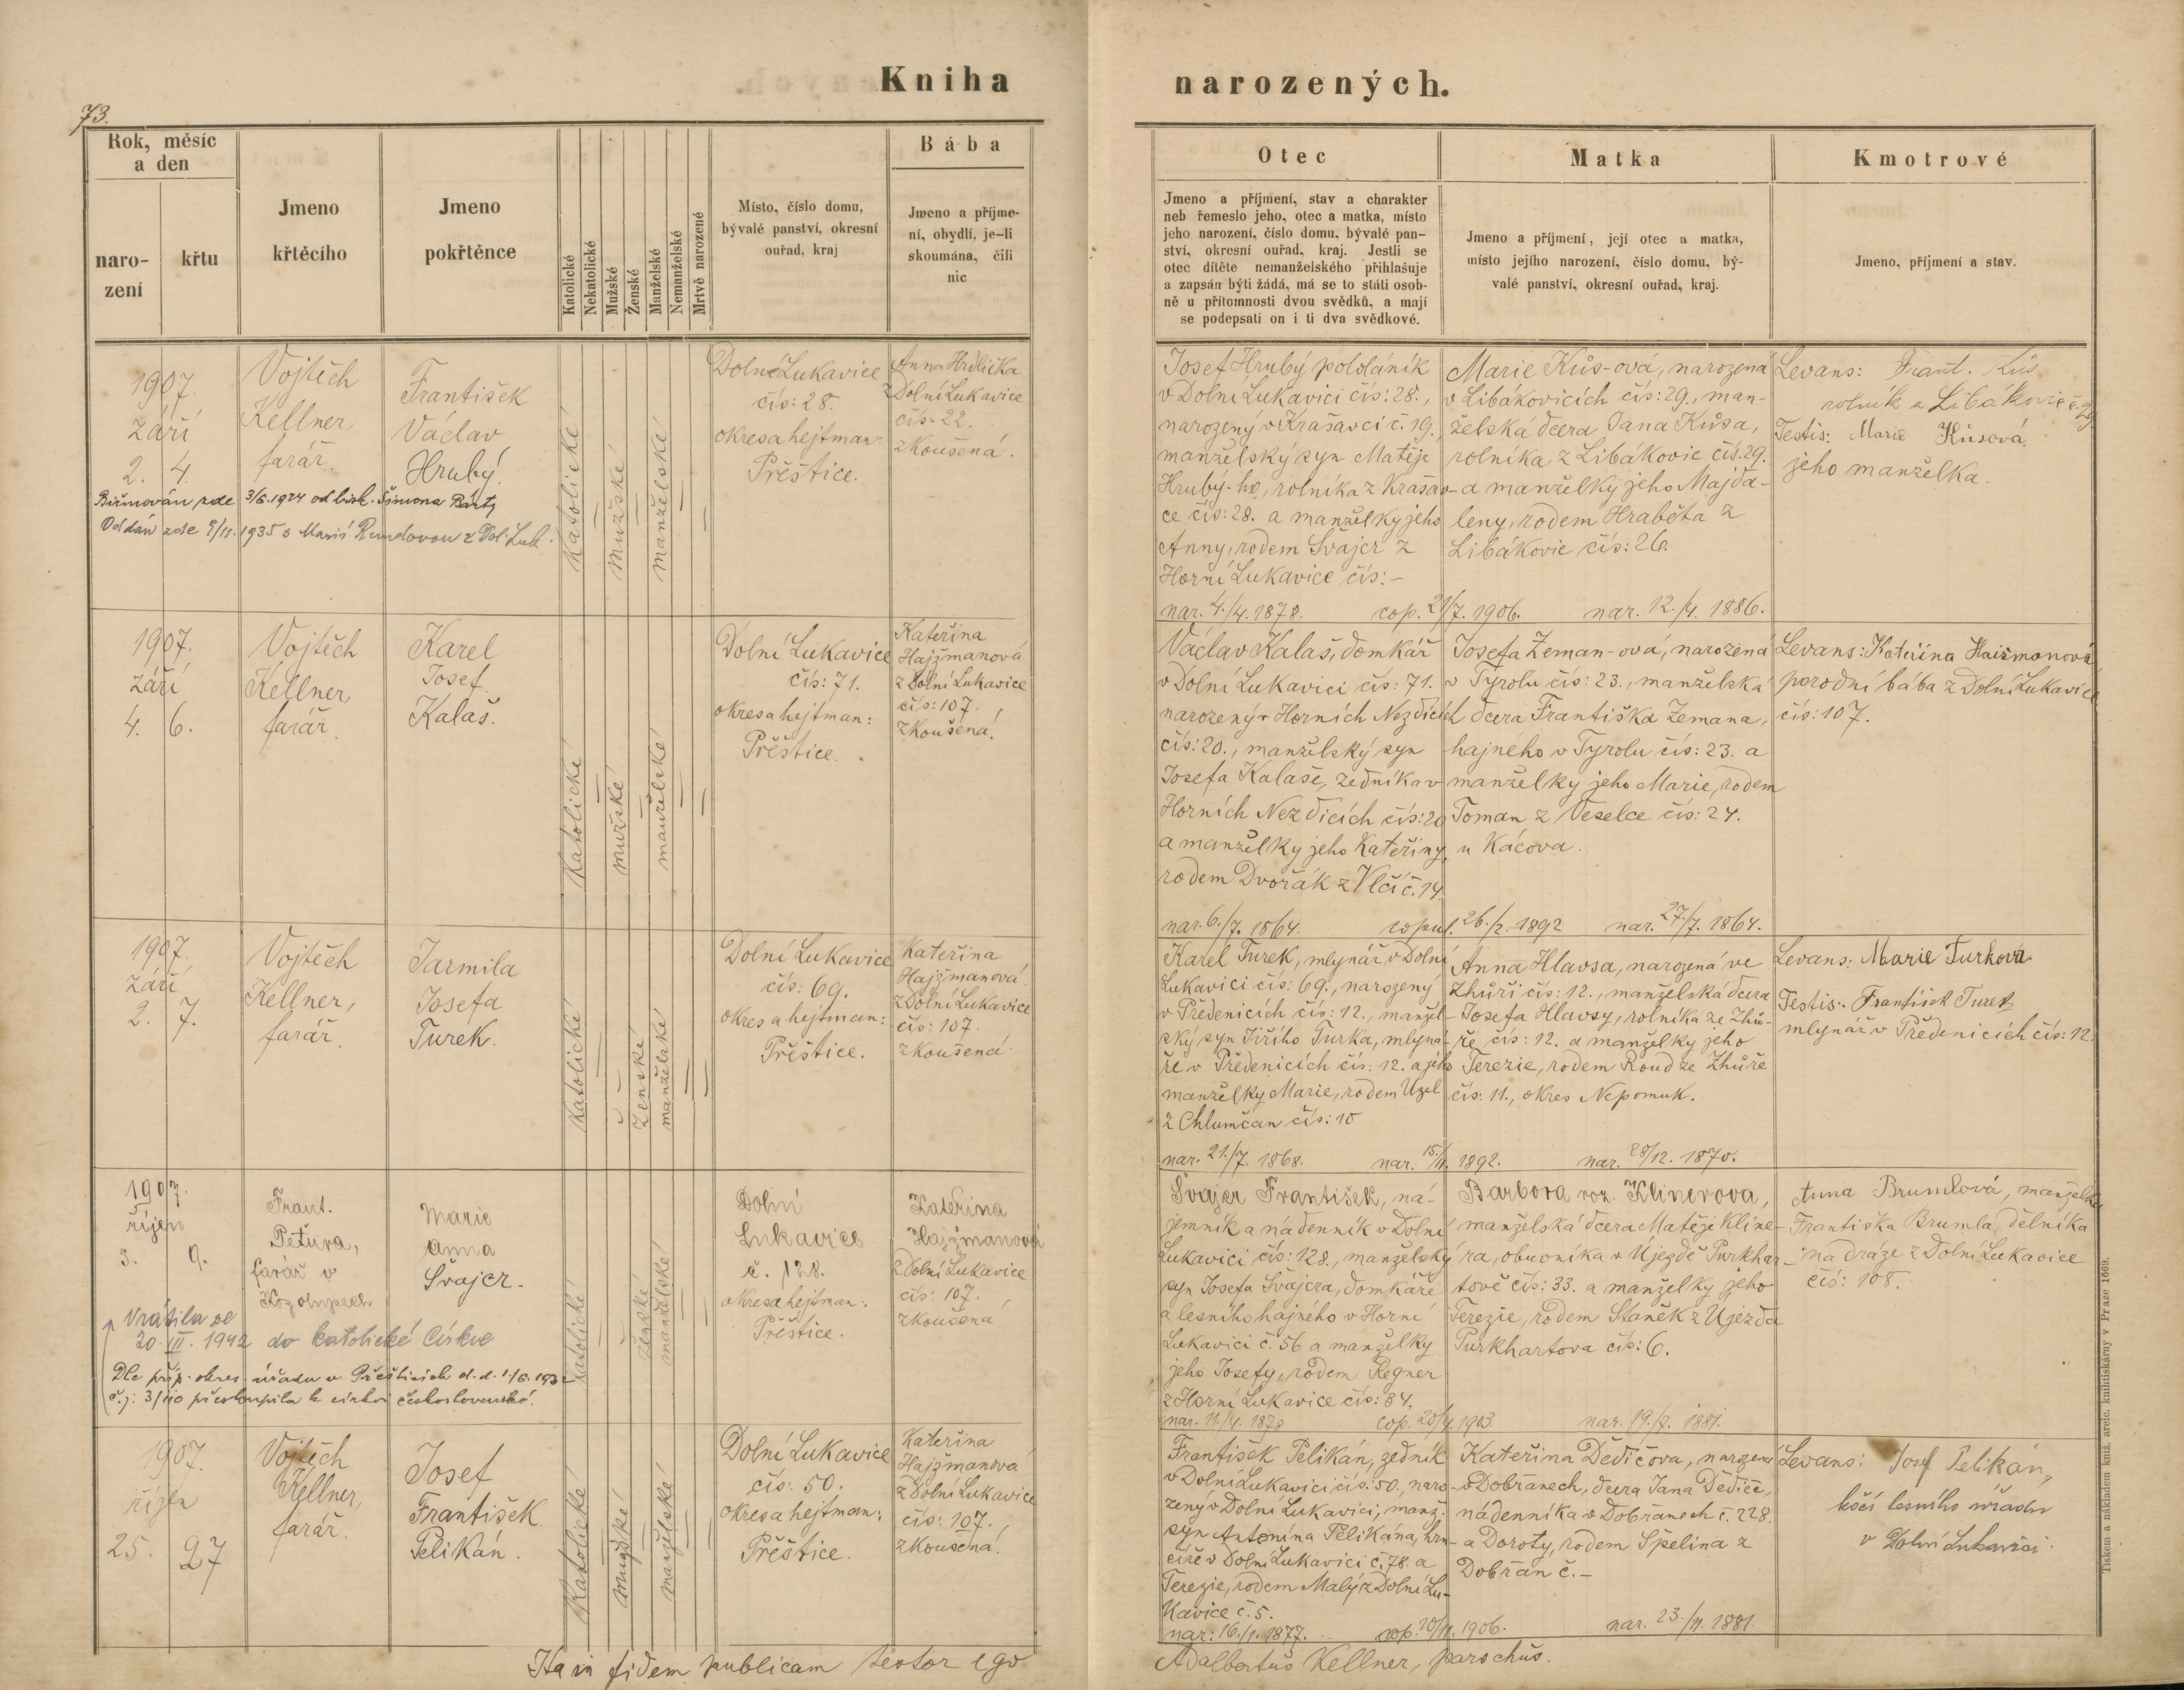 73.
Kniha narozených.
Rok, měsíc a den
narození
křtu
Jmeno křtěcího
Jmeno pokřtěnce
Katolické
Nekatolické
Mužské
Ženské
Manželské
Nemanželské
Mrtvě narozené
Místo, číslo domu,
bývalé panství, okresní
ouřad, kraj
Bába
Jmeno a příjme-
ní, obydlí, je-li
skoumána, čili
nic
Otec
Jmeno a příjmení, stav a charakter
neb řemeslo jeho, otec a matka, místo
jeho narození, číslo domu, bývalé pan-
ství, okresní ouřad, kraj. Jestli se
otec dítěte nemanželského přihlašuje
a zapsán býti žádá, má se to státi osob-
ně u přítomnosti dvou svědků, a mají
se podepsati on i ti dva svědkové.
Matka
Jmeno a příjmení, její otec a matka,
místo jejího narození, číslo domu, bý-
valé panství, okresní ouřad, kraj.
Kmotrové
Jmeno, příjmení a stav.
1907.
září
2. 4.
Vojtěch
Kellner,
farář.
František
Václav
Hrubý.
Biřmován zde 3/6. 1924 od bisk. Šimona Bárty
Oddán zde 9/11. 1935 s Marií Rundovou z Dol. Luk.
Katolické
mužské
manželské
Dolní Lukavice
čís: 28.
okresa hejtman:
Přeštice.
Anna Hrdlička
z Dolní Lukavice
čís. 22.
zkoušená.
Josef Hrubý pololáník
v Dolní Lukavici čís: 28.,
narozený v Krašavci č. 19.
manželský syn Matěje
Hrubý-ho, rolníka z Krašav-
ce čís: 28. a manželky jeho
Anny, rodem Švajcr z
Horní Lukavice čís: -
nar. 4./4. 1878. cop. 21/7. 1906. nar. 12./4. 1886.
Marie Kůs-ová, narozena
v Libákovicích čís: 29., man-
želská dcera Jana Kůsa,
rolníka z Libákovic čís. 29.
a manželky jeho Majda-
leny, rodem Hraběta z
Libákovic čís: 26.
Levans: Frant. Kůs
rolník z Libákovic č. 29
Testis: Marie Kůsová
jeho manželka.
1907.
září
4. 6.
Vojtěch
Kellner,
farář.
Karel
Josef
Kalaš.
Katolické
mužské
manželské
Dolní Lukavice
čís: 71.
okresa hejtman:
Přeštice.
Kateřina
Hajžmanová
z Dolní Lukavice
čís: 107.,
zkoušená.
Václav Kalaš, domkář
v Dolní Lukavici čís: 71.
narozený v Horních Nezdicích
čís: 20., manželský syn
Josefa Kalaše, zedníka v
Horních Nezdicích čís: 20
a manželky jeho Kateřiny,
rodem Dvořák z Vlčí č. 14.
nar. 6./7. 1864. copul. 26./2. 1892 nar. 27./7. 1864.
Josefa Zeman-ová, narozená
v Tyrolu čís: 23., manželská
dcera Františka Zemana,
hajného v Tyrolu čís: 23. a
manželky jeho Marie, rodem
Toman z Veselce čís: 24.
u Kácova.
Levans: Kateřina Haismanová
porodní bába z Dolní Lukavice
čís: 107.
1907.
září
2. 7.
Vojtěch
Kellner,
farář.
Jarmila
Josefa
Turek.
Katolické
Ženské
manželské
Dolní Lukavice
čís: 69.
okres a hejtman:
Přeštice.
Kateřina
Hajžmanová
z Dolní Lukavice
čís: 107.
zkoušená.
Karel Turek, mlynář v Dolní
Lukavici čís: 69., narozený
v Předenicích čís: 12., manžel-
ský syn Jiřího Turka, mlyná-
ře v Předenicích čís: 12. a jeho
manželky Marie, rodem Uzel
z Chlumčan čís: 10
nar. 21./7. 1868. nar. 15./11. 1892. nar. 28/12. 1870.
Anna Hlavsa, narozená ve
Zhůři čís: 12., manželská dcera
Josefa Hlavsy, rolníka ze Zhů-
ře čís: 12. a manželky jeho
Terezie, rodem Roud ze Zhůře
čís: 11., okres Nepomuk.
Levans: Marie Turková
Testis: František Turek
mlynář v Předenicích čís: 12.
1907.
říjen
3. 9.
Frant.
Petura,
farář v
Marie
Anna
Švajcr.
Vrátila se
20. III. 1942 do katolické církve
Dle příp. okres. úřadu v Přešticích d.d. 1/6. 1932
č.j: 3/110 přestoupila k církvi československé.
Katolické
ženské
manželské
Dolní
Lukavice
č. 128.
okresa hejtman:
Přeštice.
Kateřina
Hajžmanová
z Dolní Lukavice
čís: 107.,
zkoušená
Švajcr František, ná-
jemník a nádenník v Dolní
Lukavici čís: 128., manželský
syn Josefa Švajcra, domkáře
a lesního hajného v Horní
Lukavici č. 56 a manželky
jeho Josefy, rodem Regner
z Horní Lukavice čís: 84.
nar. 11./4. 1878 cop. 20/4. 1903. nar. 19./9. 1881.
Barbora roz. Klinerova,
manželská dcera Matěje Kline-
ra, obuvníka v Újezdě Purkhar-
tově čís: 33. a manželky jeho
Terezie, rodem Staněk z Ujezda
Purkhartova čís: 6.
Anna Brumlová, manželka
Františka Brumla, dělníka
na dráze z Dolní Lukavice
čís: 108.
1907.
říjen
25. 27
Vojtěch
Kellner,
farář.
Josef
František
Pelikán.
Katolické
mužské
manželské
Dolní Lukavice
čís: 50.
okresa hejtman:
Přeštice.
Kateřina
Hajžmanová
z Dolní Lukavice
čís: 107.,
zkoušená.
František Pelikán, zedník
v Dolní Lukavici čís: 50., naro-
zený v Dolní Lukavici, manž.
syn Antonína Pelikána, hrn-
číře v Dolní Lukavici č. 78. a
Terezie, rodem Malý z Dolní Lu-
kavice č. 5.
nar: 16./1. 1877. cop. 20/11. 1906. nar. 23./11. 1881.
Kateřina Dědičova, narozena
v Dobřanech, dcera Jana Dědiče,
nádenníka v Dobřanech č. 228.
a Doroty, rodem Špelina z
Dobřan č. -
Levans: Josef Pelikán,
kočí lesního úřadu
v Dolní Lukavici.
Ita in fidem publicam testor ego Adalbertus Kellner, parochus.
Tiskem a nákladem kniž. arcic. knihtiskárny v Praze 1869.